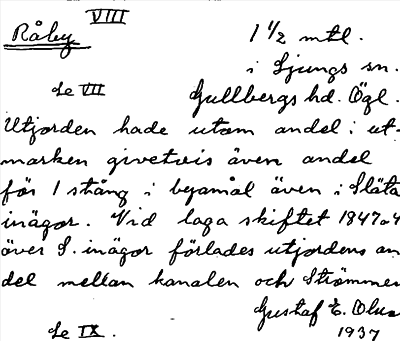 VIII
Råby 1 1/2 mtl.
i Ljungs sn.
Se VII Gullbergs hd. Ögl.
Utjorden hade utom andel i ut-
marken givetvis även andel
för 1 stång i byamål även i Släta
inägor. Vid laga skiftet 1847 o 4
över S. inägor förlades utjordens an
del mellan kanalen och Strömmen
Gustaf E. Olus
Se IX. 1937